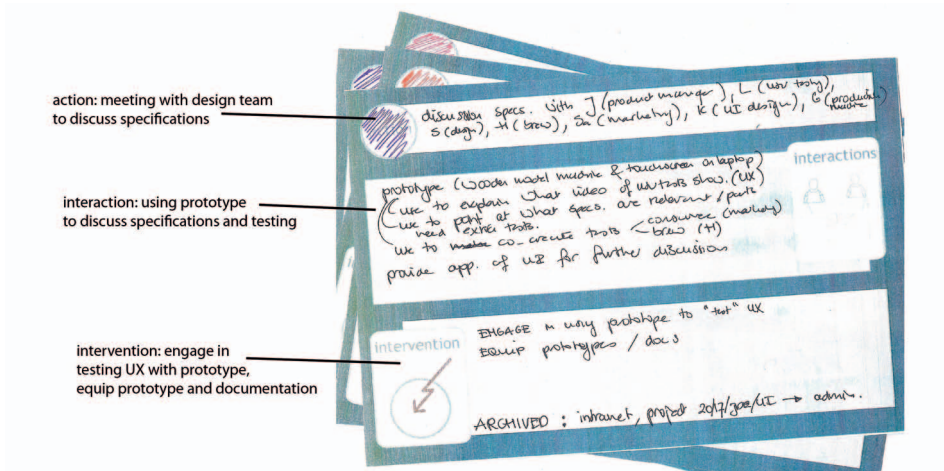 action: meeting with design team
to discuss specifications
interaction: using prototype
to discuss specifications and testing
intervention: engage in
testing UX with prototype,
equip prototype and documentation
discussion specs. with J (product manager), L (usv testing),
S (design), H (brew), Sa (marketing), K (UI design), G (production
machine
Interactions
prototype (wooden model machine & touchscreen on laptop)
use to explain what video of usv tests show. (UX)
use to point at what specs. are relevant / parts
need extra tests.
use to co-create tests consumer (marketing)
brew (H)
provide app. of UI for further discussions
Intervention
ENGAGE in using prototype to "test" UX
EQUIP prototypes / docs
ARCHIVED : intranet, project → admin.